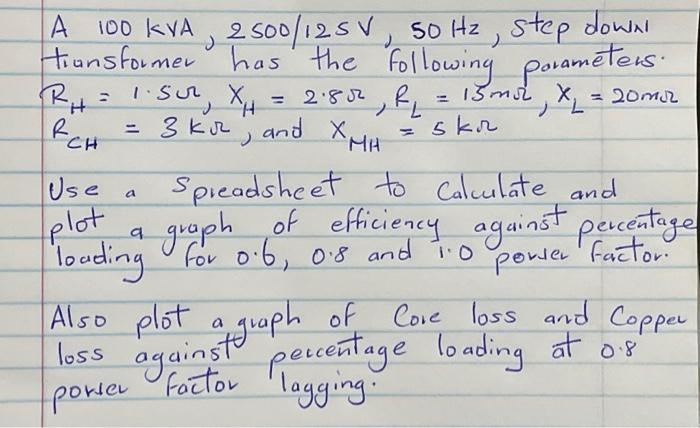 A 100 KVA, 2500/125 V, 50 Hz, step down
transformer has the following parameters.
R_H = 1.5Ω, X_H = 2.8Ω, R_L = 15mΩ, X_L = 20mΩ
R_CH = 3 kΩ, and X_MH = 5 kΩ
Use a Spreadsheet to Calculate and
plot a graph of efficiency against percentage
loading for 0.6, 0.8 and 1.0 power factor.
Also plot a graph of Core loss and Copper
loss against percentage loading at 0.8
power factor lagging.